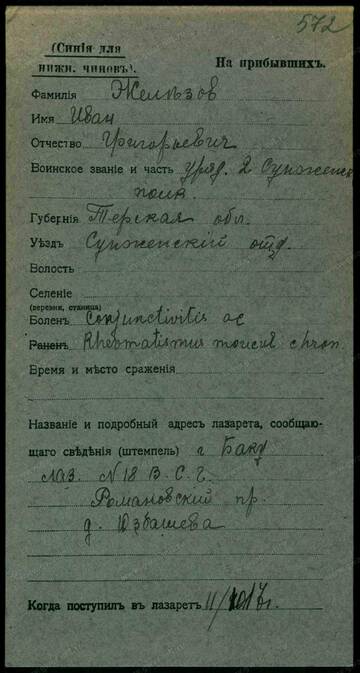 572
(Синія для
нижн. чиновъ).
На прибывшихъ.
Фамилія Желѣзов
Имя Иван
Отчество Григорьевич
Воинское званіе и часть уряд. 2 Сунженск
полк.
Губернія Терская обл.
Уѣздъ Сунженскій отд.
Волость
Селеніе
(деревня, станица)
Боленъ Conjunctivitis ac
Раненъ Rheumatismus muscul chron.
Время и мѣсто сраженія
Названіе и подробный адресъ лазарета, сообщаю-
щаго свѣдѣнія (штемпель) г Баку
лаз. N 18 В. С. Г.
Романовскій пр.
д. Юзбашева
Когда поступилъ въ лазаретъ 11/